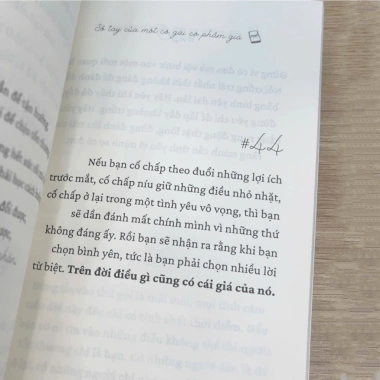 Sổ tay của một cô gái có phẩm giá
#44
Nếu bạn cố chấp theo đuổi những lợi ích
trước mắt, cố chấp níu giữ những điều nhỏ nhặt,
cố chấp ở lại trong một tình yêu vô vọng, thì bạn
sẽ dần đánh mất chính mình vì những thứ
không đáng ấy. Rồi bạn sẽ nhận ra rằng khi bạn
chọn bình yên, tức là bạn phải chọn nhiều lời
từ biệt. Trên đời điều gì cũng có cái giá của nó.